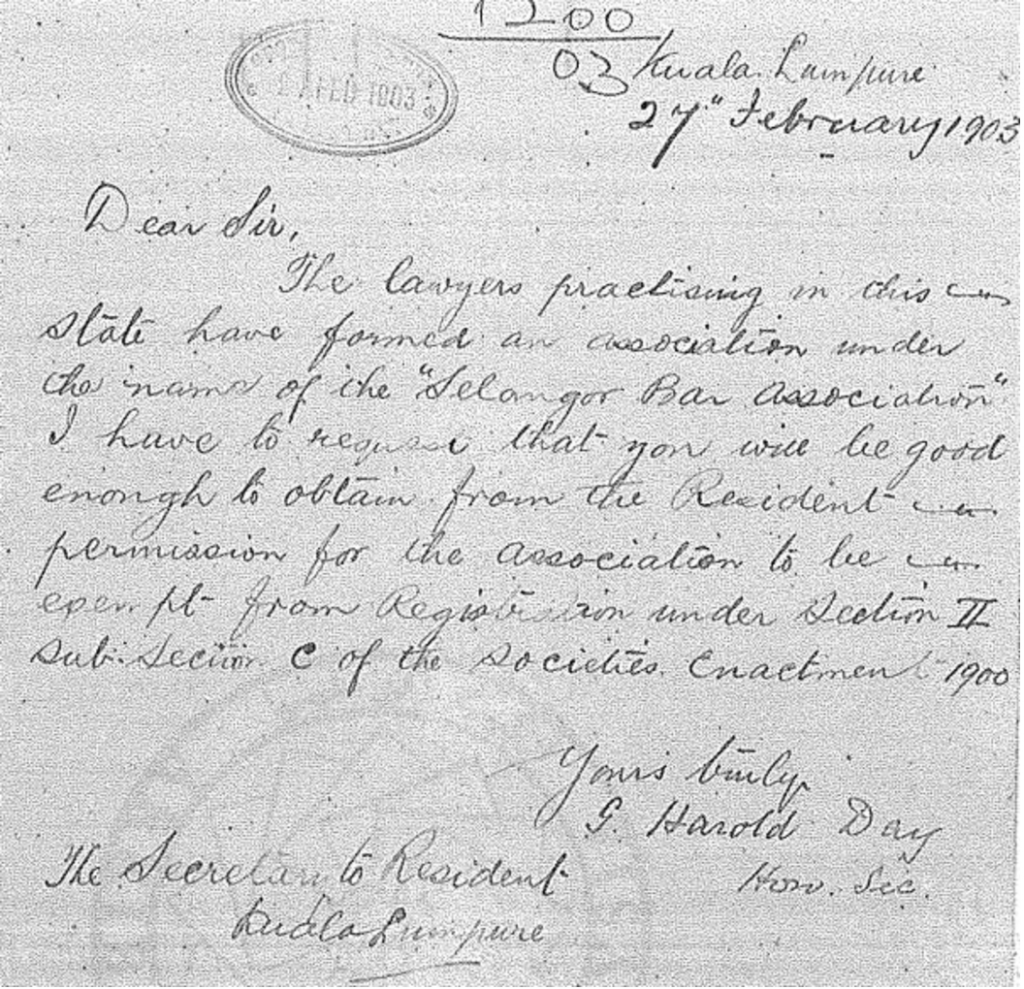 1200
03
Kuala Lumpure
27" February 1903
FEB 1903
Dear Sir,
The lawyers practising in this
state have formed an association under
the name of the "Selangor Bar Association"
I have to request that you will be good
enough to obtain from the Resident
permission for the Association to be
exempt from Registration under Section II
Sub. Section C of the Societies Enactment 1900
Yours truly
G. Harold Day
Hon. Sec.
The Secretary to Resident
Kuala Lumpure